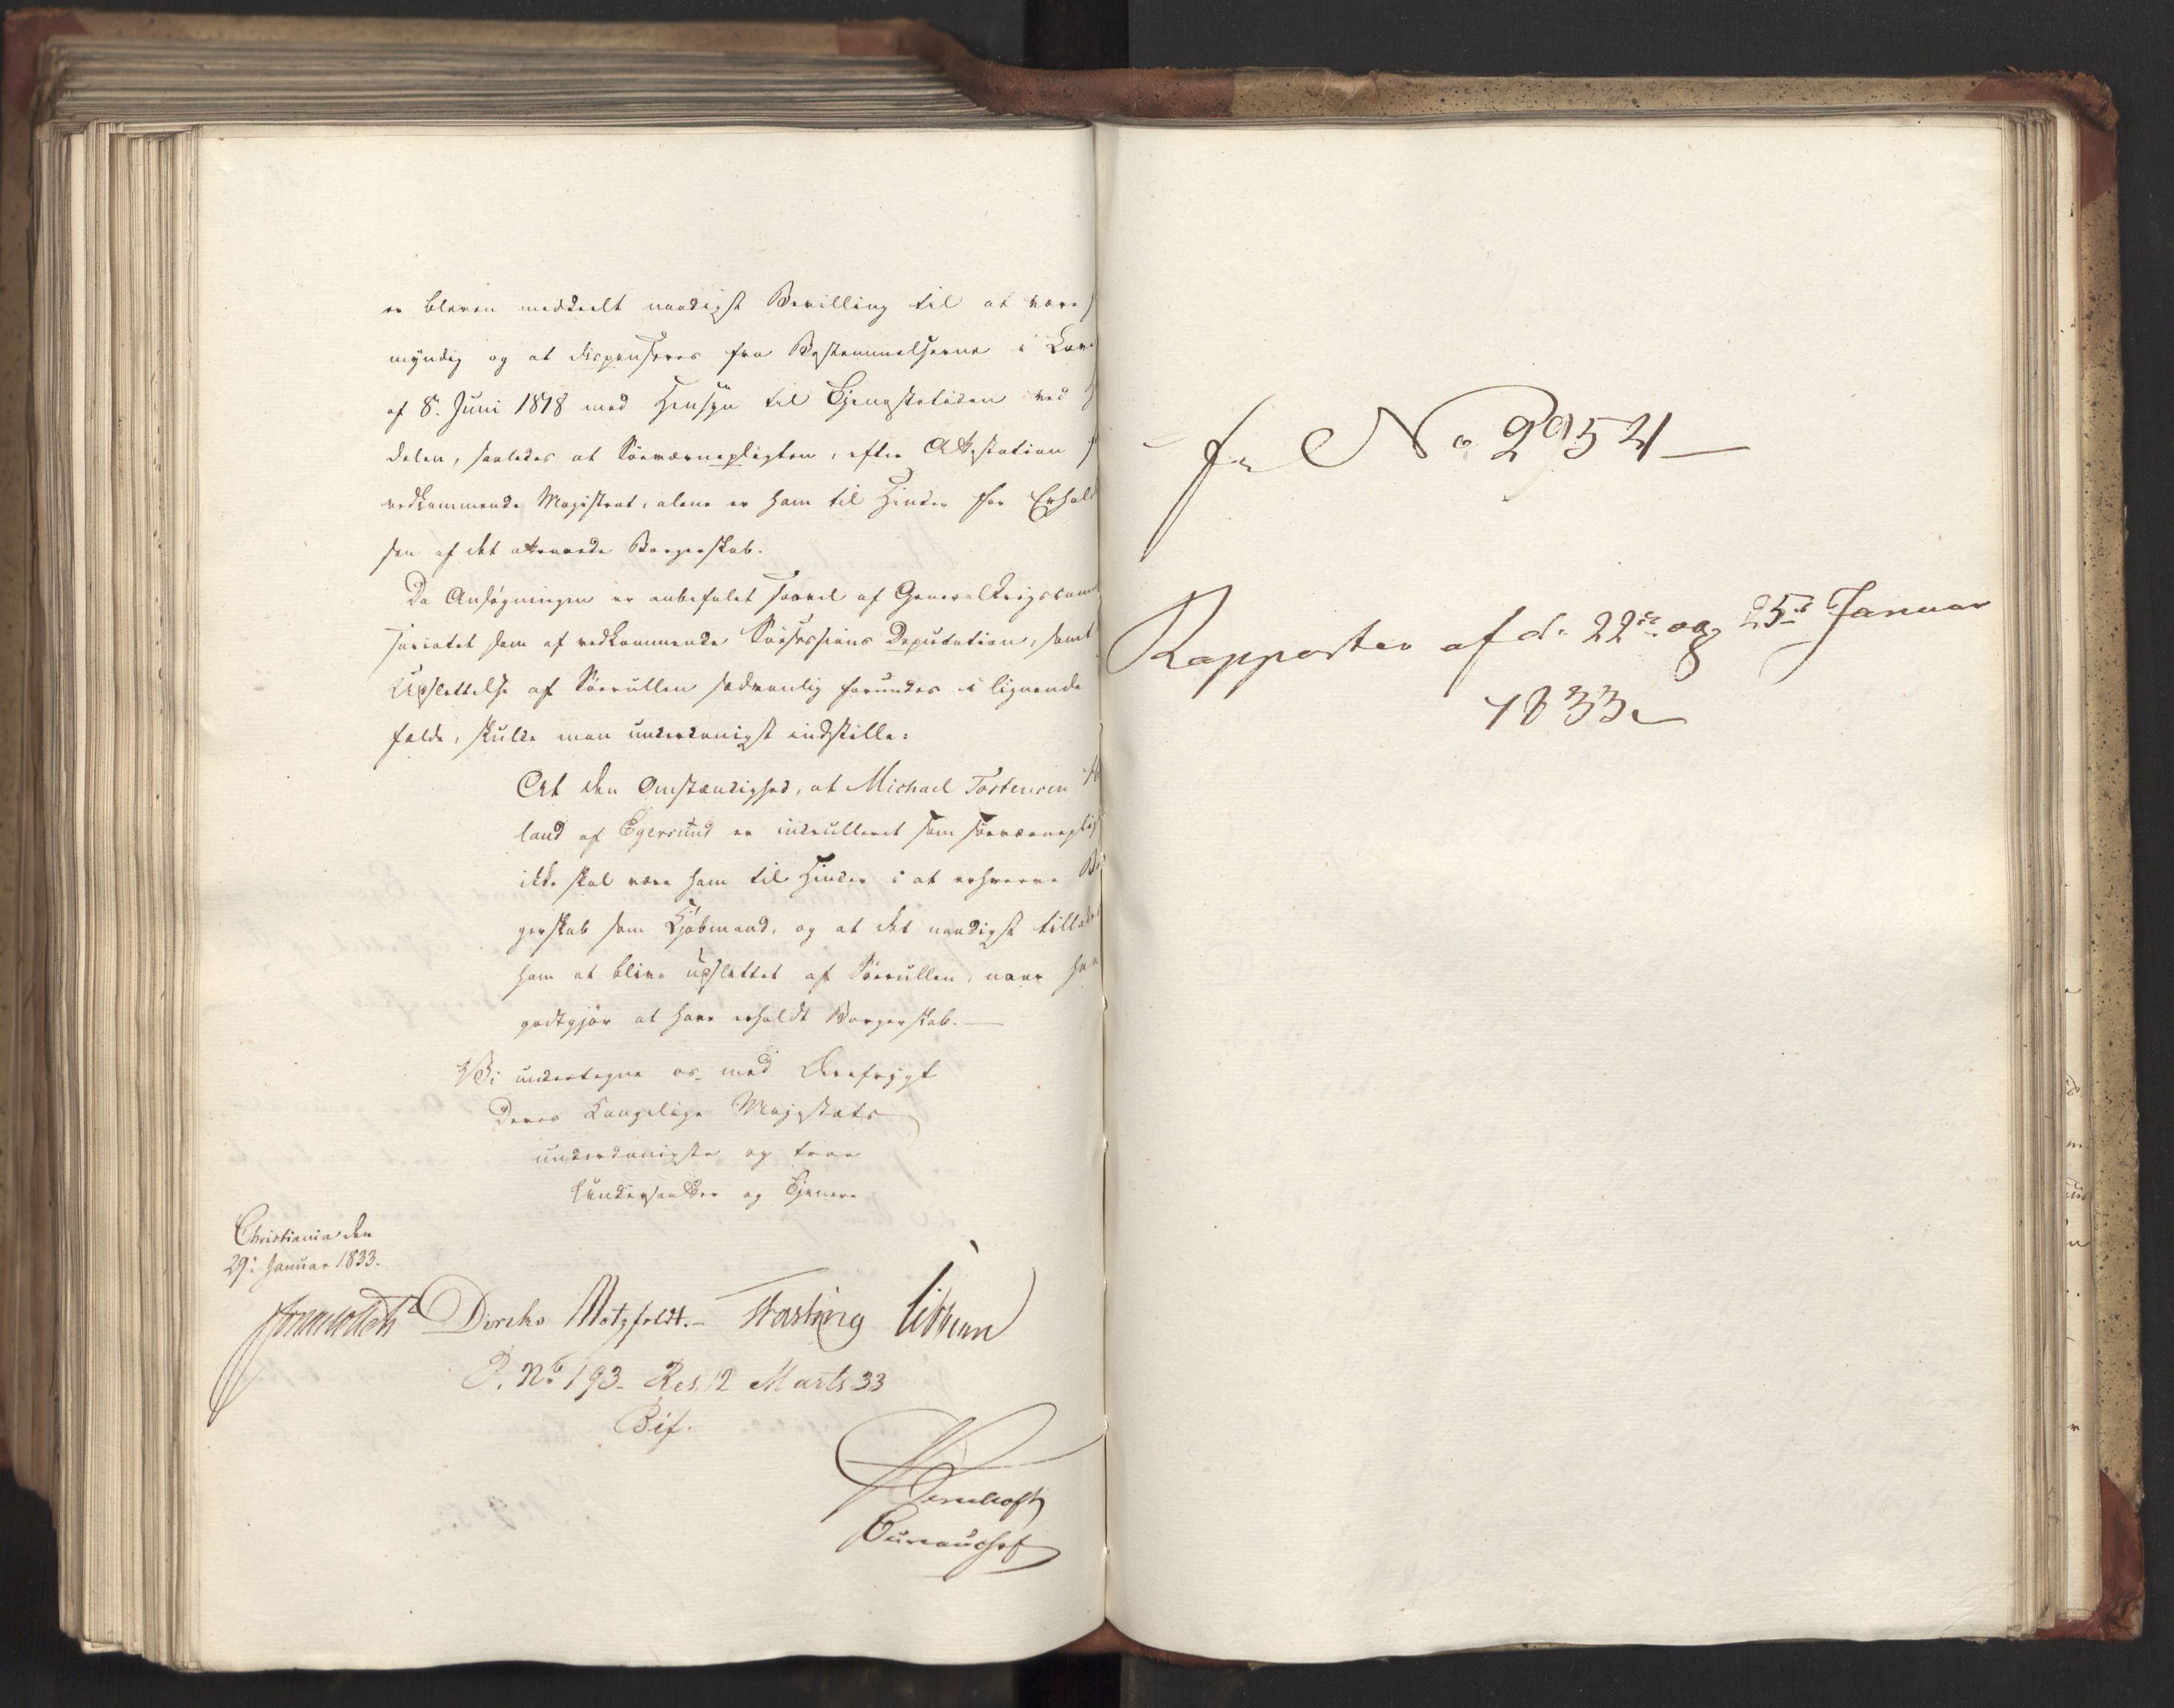 er bleven meddeelt naadigst Bevilling til at være
myndig og at dispenseres fra Bestemmelserne i Lov
af 8. Juni 1818 med Hensyn til Tjenestetiden ved
delen, saaledes at Söeværnepligten, efter Attestation
vedkommende Magistrat, alene er ham til Hinder for Erhold
sen af det attraaede Borgerskab.
Da Ansøgningen er anbefalet saavel af GeneralKrigscom
sariatet som af vedkommende Söesessions Deputation, samt
Udslettelse af Söerullen sædvanlig forundes i lignende
fælde, skulle man underdanigst indstille:
At den Omstændighed, at Michael Tostensen
land af Egersund er indrulleret som söeværneplig
ikke skal være ham til Hinder i at erhverve Bo
gerskab som Kjöbmand, og at det naadigst tillade
ham at blive udslettet af Söerullen, naar ha
godtgjör at have erholdt Borgerskab. —
Vi undertegne os med Ærefrygt
Deres Kongelige Majestæts
underdanigste og troe
Undersaatter og Tjenere
Christiania den
29. Januar 1833.
Diriks Motzfeldt. Fasting
P. No 193. Res. 12 Marts 33
Bif.
Bureauchef
No 2954
Rapporter af d. 22de og 25de Januar
1833